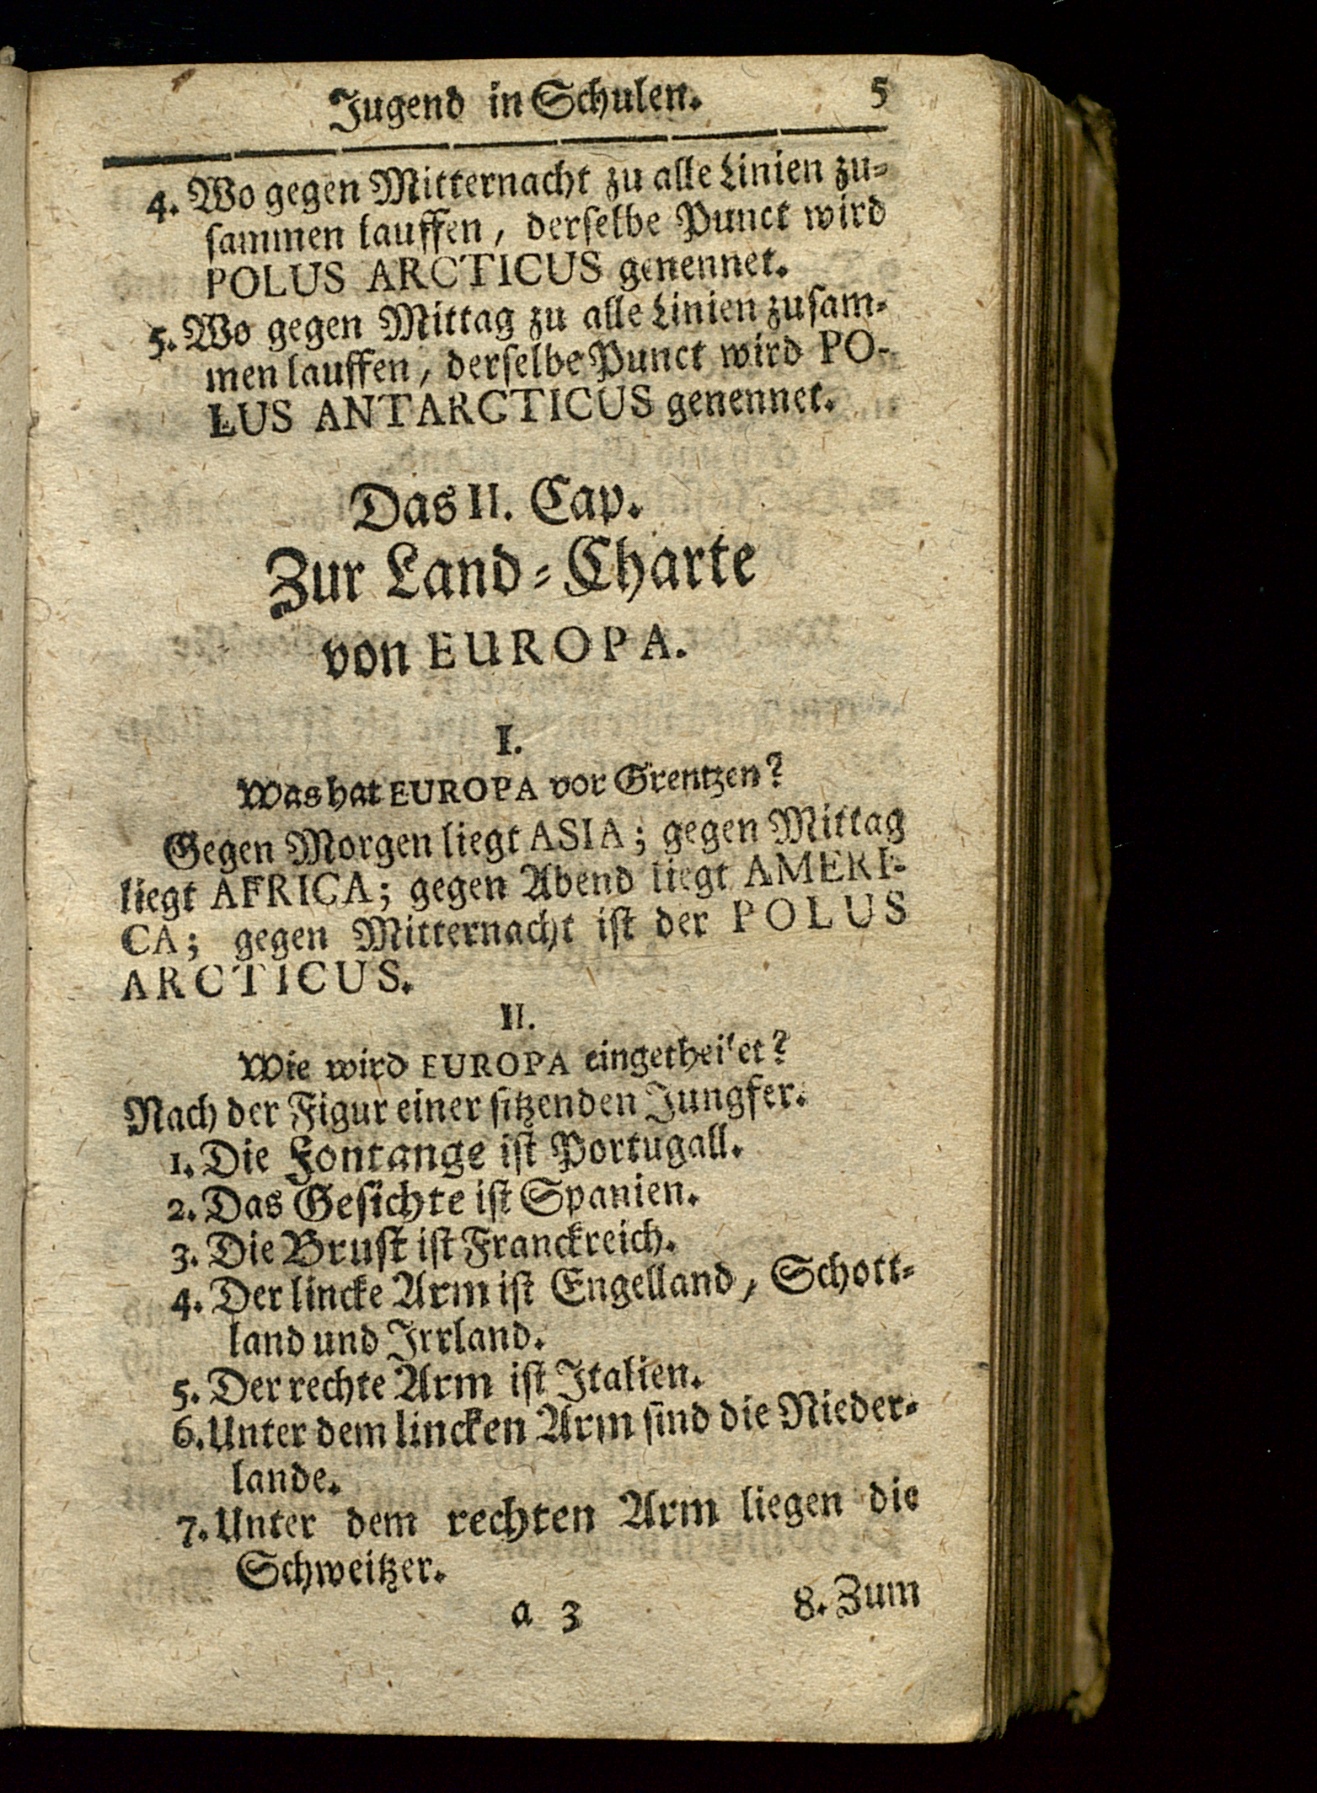 Jugend in Schulen. 5
4. Wo gegen Mitternacht zu alle Linien zu-
sammen lauffen, derselbe Punct wird
POLUS ARCTICUS genennet.
5. Wo gegen Mittag zu alle Linien zusam-
men lauffen, derselbe Punct wird PO-
LUS ANTARCTICUS genennet.
Das II. Cap.
Zur Land-Charte
von EUROPA.
I.
Was hat EUROPA vor Grentzen?
Gegen Morgen liegt ASIA; gegen Mittag
liegt AFRICA; gegen Abend liegt AMERI-
CA; gegen Mitternacht ist der POLUS
ARCTICUS.
II.
Wie wird EUROPA eingetheilet?
Nach der Figur einer sitzenden Jungfer.
1. Die Fontange ist Portugall.
2. Das Gesichte ist Spanien.
3. Die Brust ist Franckreich.
4. Der lincke Arm ist Engelland, Schott-
land und Irrland.
5. Der rechte Arm ist Italien.
6. Unter dem lincken Arm sind die Nieder-
lande.
7. Unter dem rechten Arm liegen die
Schweitzer.
a 3 8. Zum